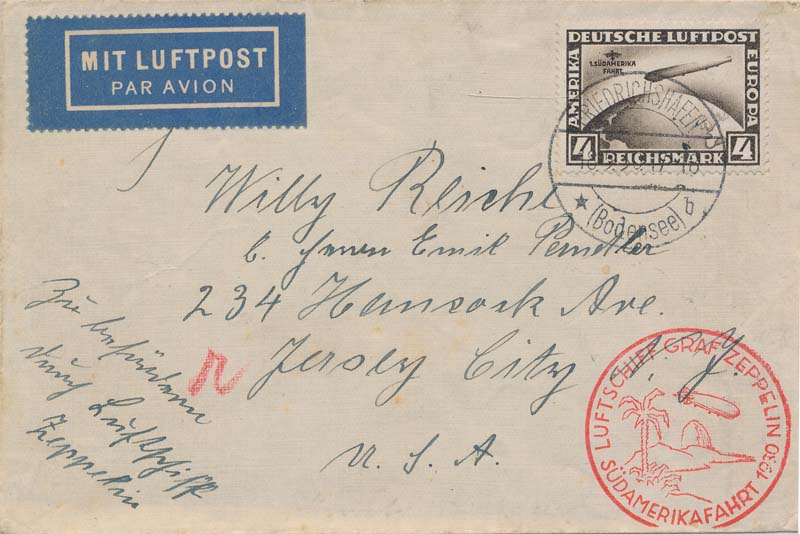 MIT LUFTPOST
PAR AVION
DEUTSCHE LUFTPOST
AMERIKA
EUROPA
1. SÜDAMERIKA
FAHRT
4 REICHSMARK 4
FRIEDRICHSHAFEN
(Bodensee) b
Willy Reichl
b. Herrn Emil
234 Hancock Ave.
Jersey City N. Y.
U. S. A.
Zu befördern
durch Luftschiff
Zeppelin
LUFTSCHIFF GRAF ZEPPELIN
SÜDAMERIKAFAHRT 1930